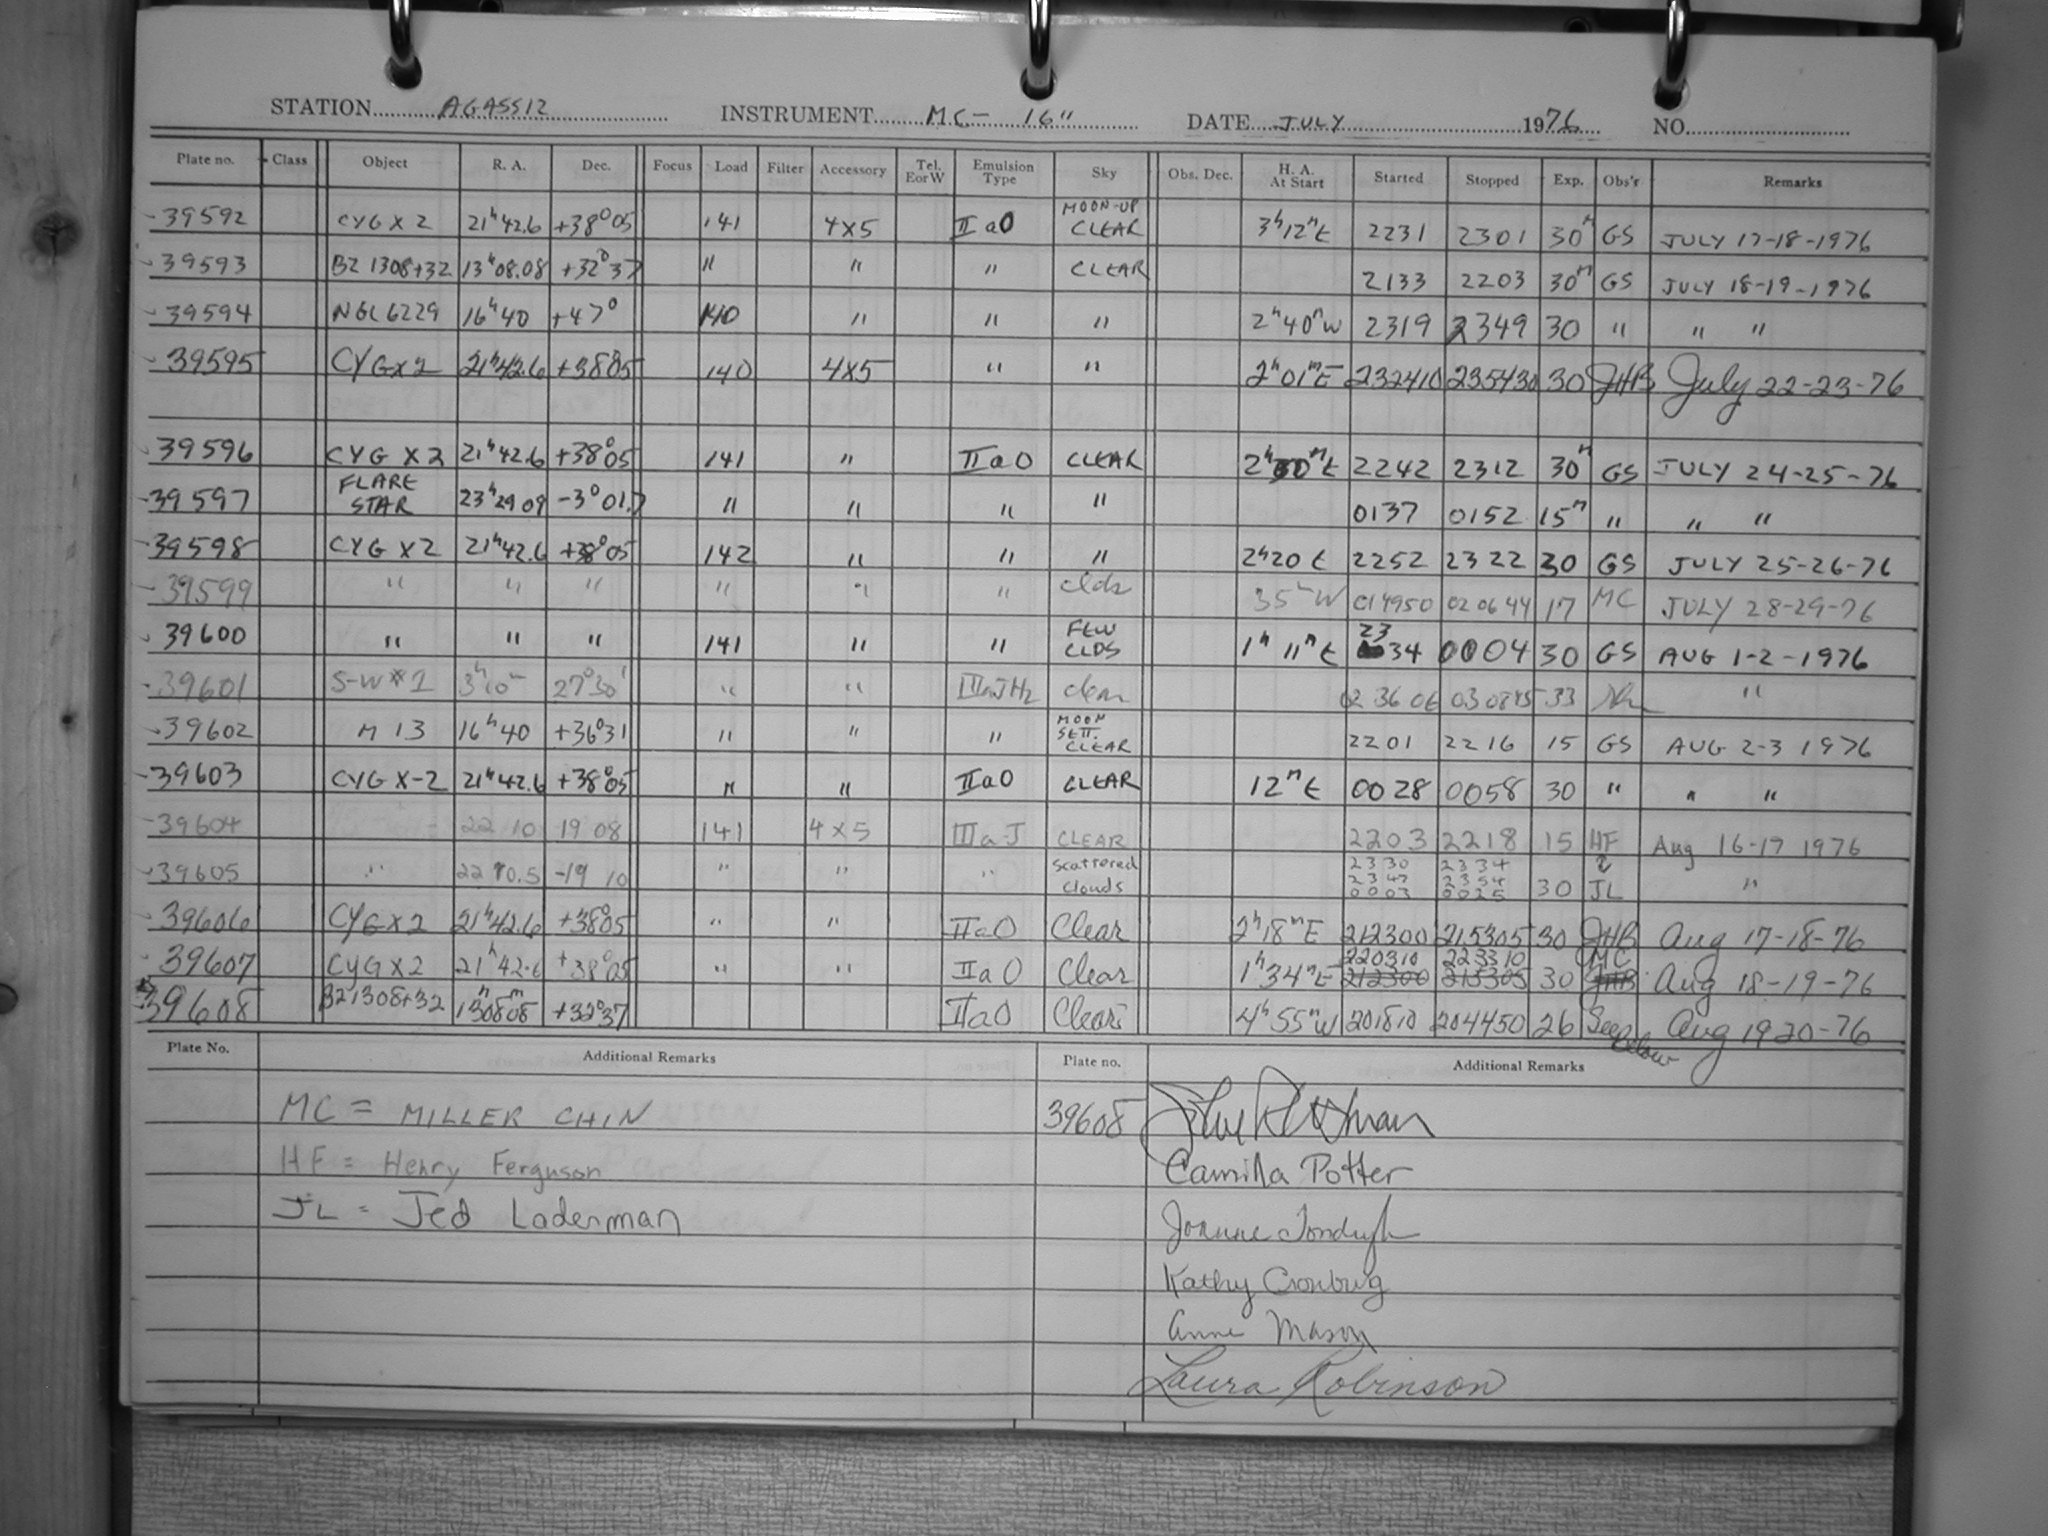 STATION AGASSIZ INSTRUMENT MC- 16" DATE JULY 1976 NO.
Plate no. Class Object R. A. Dec. Focus Load Filter Accessory Tel. E or W Emulsion Type Sky Obs. Dec. H. A. At Start Started Stopped Exp. Obs'r Remarks
39592 CYG X 2 21h42.6 +38°05 141 4X5 IIaO MOON-UP CLEAR 3h12mE 2231 2301 30m GS JULY 17-18-1976
39593 B2 1308+32 13h08.08 +32°37 " " " CLEAR 2133 2203 30m GS JULY 18-19-1976
39594 NGC 6229 16h40 +47° 140 " " " 2h40mW 2319 2349 30 " " "
39595 CYG X 2 21h42.6 +38°05 140 4X5 " " 2h01mE 232410 235430 30 JHB July 22-23-76
39596 CYG X 2 21h42.6 +38°05 141 " IIaO CLEAR 2h30mE 2242 2312 30m GS JULY 24-25-76
39597 FLARE STAR 23h29 09 -3°01.7 " " " " 0137 0152 15m " " "
39598 CYG X 2 21h42.6 +38°05 142 " " " 2h20 E 2252 2322 30 GS JULY 25-26-76
39599 " " " " " " clds 35mW 014950 020644 17 MC JULY 28-29-76
39600 " " " 141 " " FEW CLDS 1h 11mE 2334 0004 30 GS AUG 1-2-1976
39601 S-W #1 3h10m 27°30' " " IIIaJH2 clear 02 36 06 030845 33 "
39602 M 13 16h40 +36°31 " " " MOON SETT. CLEAR 2201 2216 15 GS AUG 2-3 1976
39603 CYG X-2 21h42.6 +38°05 " " IIaO CLEAR 12mE 0028 0058 30 " " "
39604 22 10 19 08 141 4X5 IIIa-J CLEAR 2203 2218 15 HF Aug 16-17 1976
39605 " 22 10.5 -19 10 " " " Scattered Clouds 2330 2334 2347 2354 0003 0025 30 JL "
39606 CYG X 2 21h42.6 +38°05 " " IIaO Clear 2h18mE 212300 215305 30 JHB Aug 17-18-76
39607 CYG X 2 21h42.6 +38°05 " " IIaO Clear 1h34mE 220310 212300 223310 215305 30 MC JHB Aug 18-19-76
39608 B2 1308+32 13h08m08 +32°37 IIaO Clear 4h55mW 201810 204450 26 See below Aug 19 20-76
Plate No. Additional Remarks Plate no. Additional Remarks
MC = MILLER CHIN 39608
HF = Henry Ferguson Camilla Potter
JL = Jed Laderman Joanne
Kathy
Anne Mason
Laura Robinson